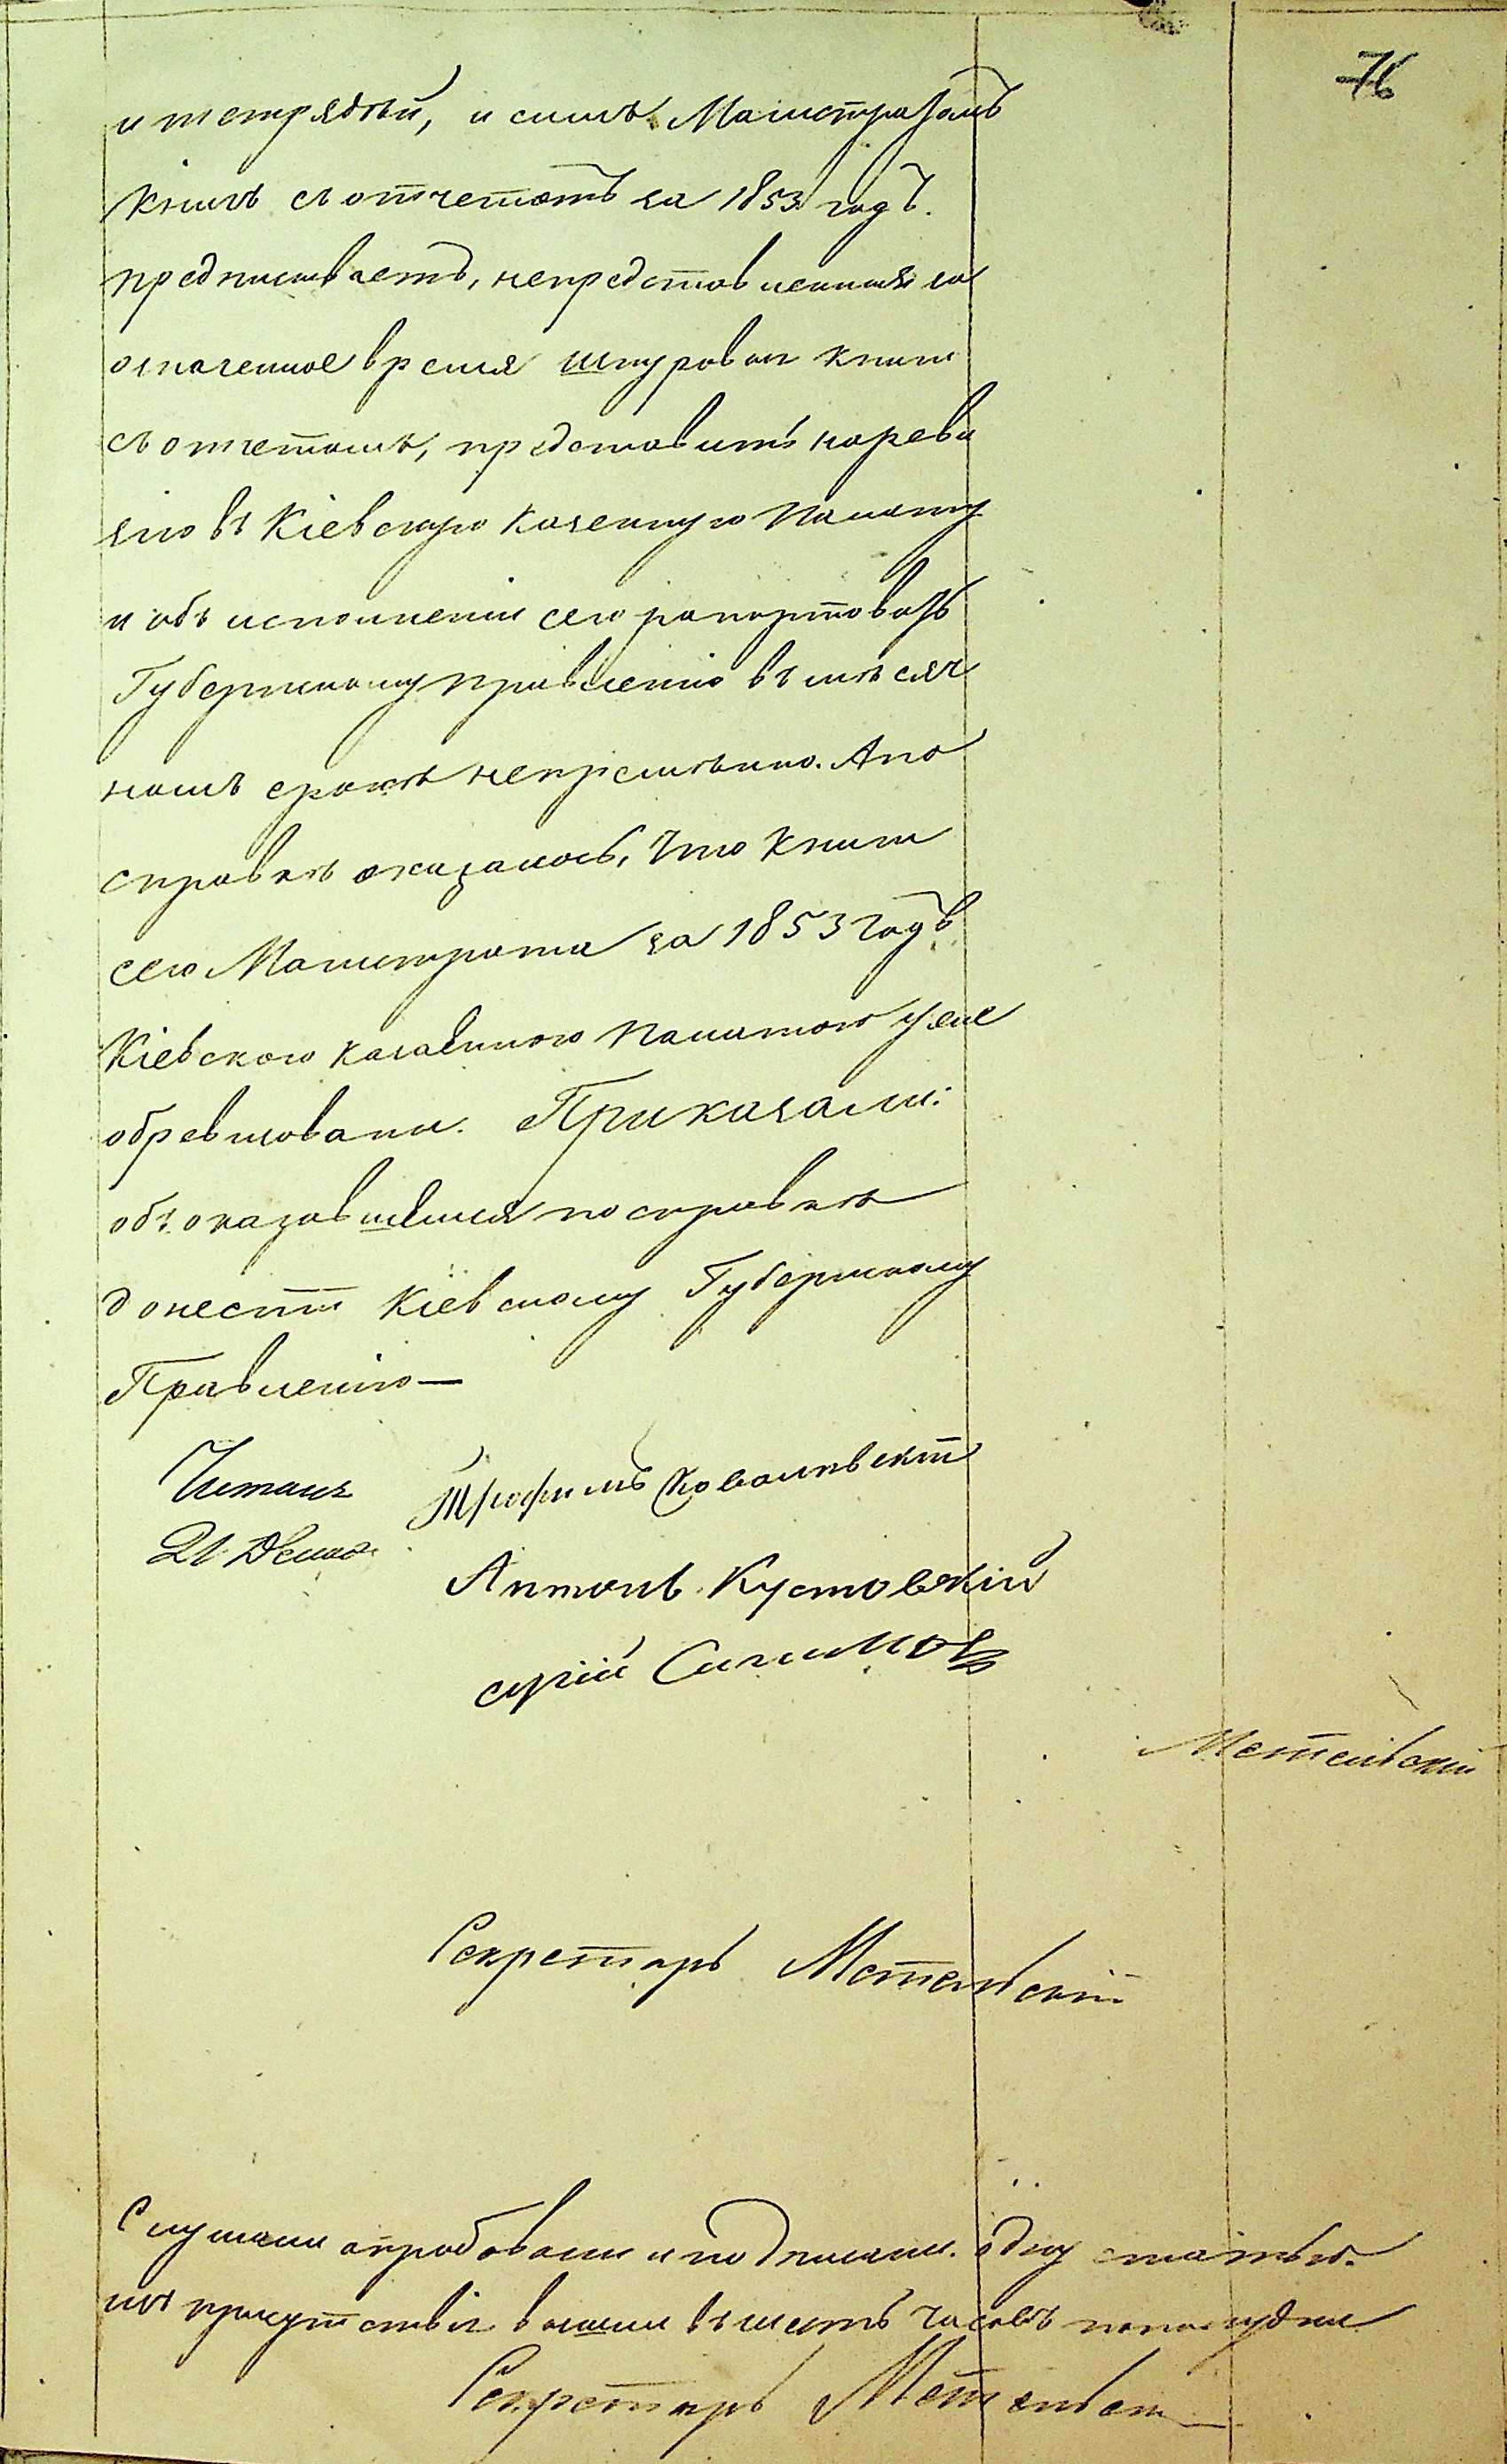 76
и тетрядей, и симъ Магистратомъ
книгъ съ отчетомъ за 1853 годъ.
предписываетъ, непредставленныя за
означенное время шнуровыя книги
съ отчетомъ, представить на реви
зію въ Кіевскую Казенную Палату
и объ исполненіи сего рапортовать
Губернскому Правленію въ мѣсяч
номъ срокѣ непремѣнно. А по
справкѣ оказалось, что книги
сего Магистрата за 1853 годъ
Кіевскою Казенною Палатою уже
обревизованы. Приказали:
объ оказавшемся по справкѣ
донести Кіевскому Губернскому
Правленію —
Читалъ
Трофимъ Ковалевскій
Антонъ Кустовскій
Метельскій
Секретарь Метельскій
Слушали апробовали и подписали одну статью.
изъ присутствія вышли въ шесть часовъ пополудни
Секретарь Метельскій